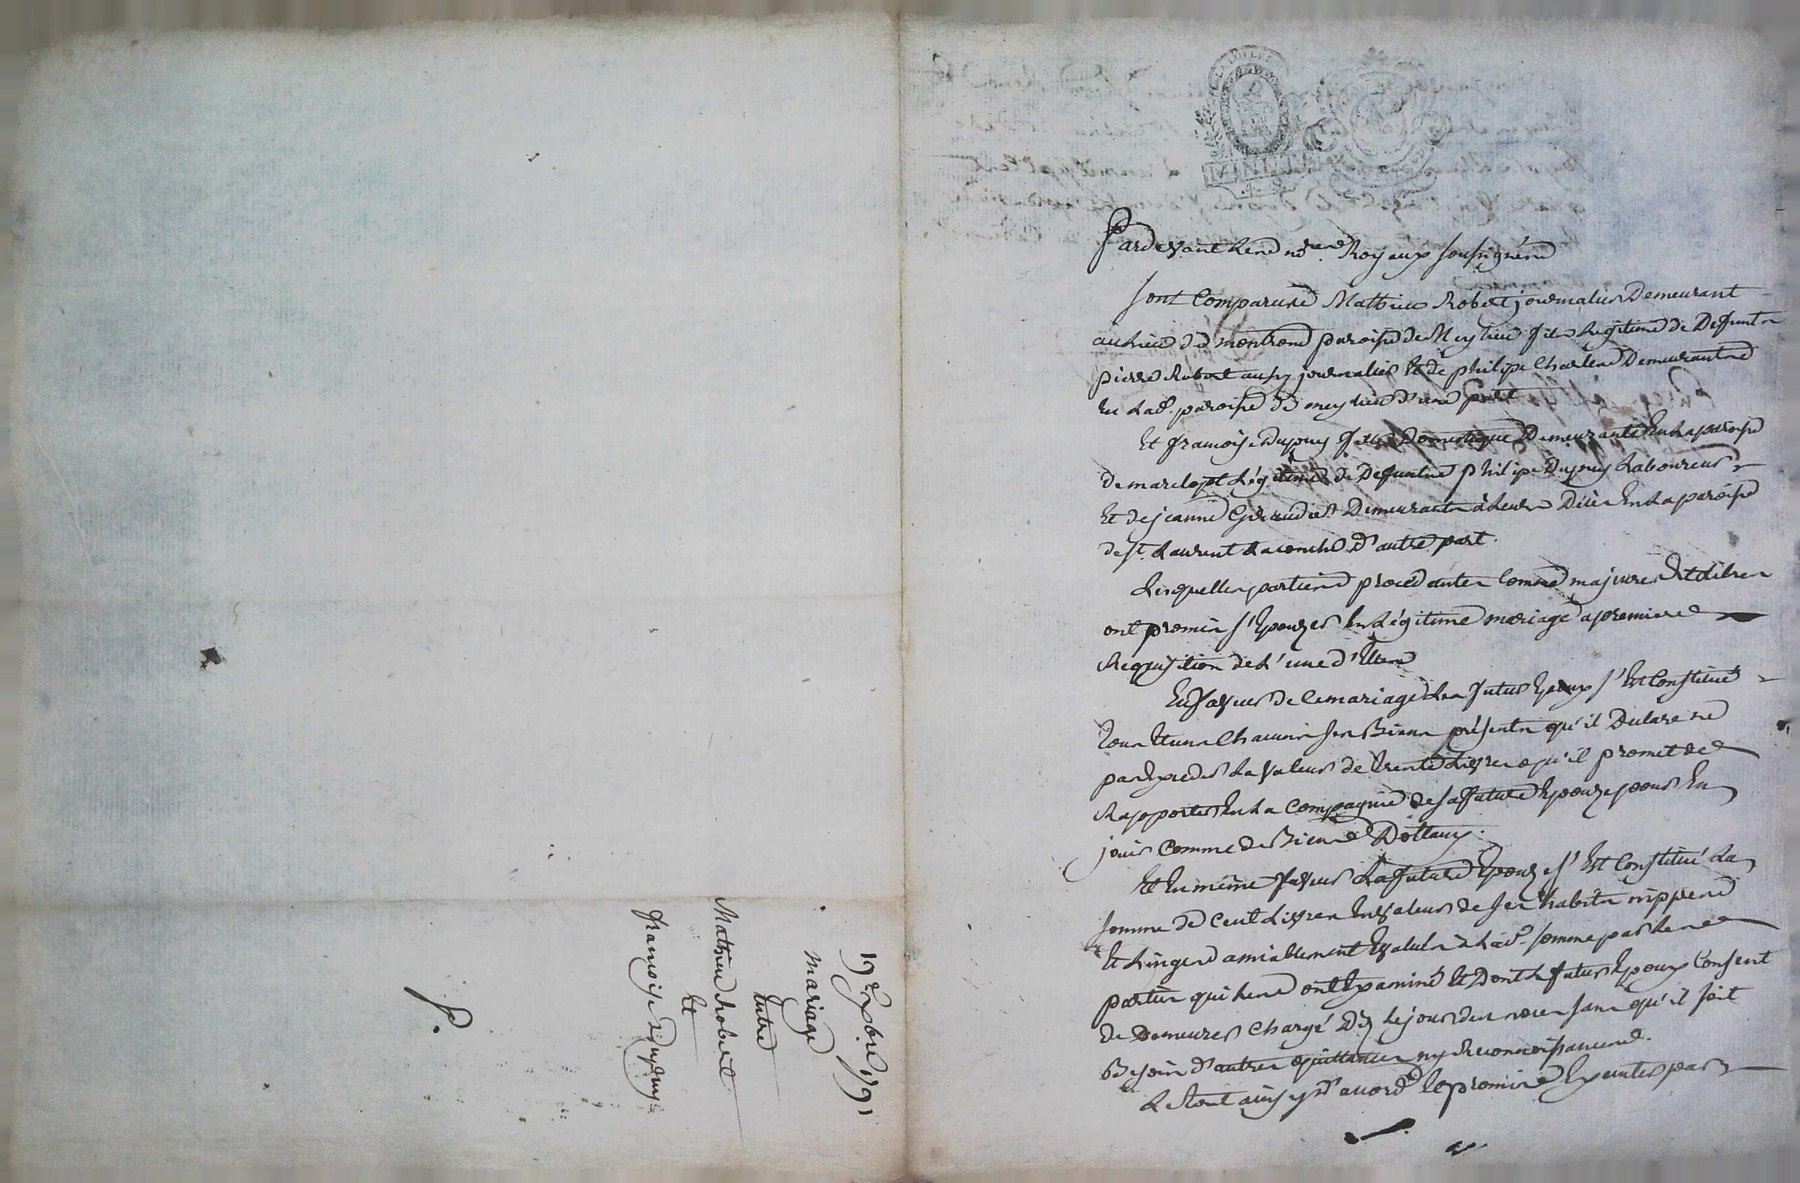 Pardevant les nores Royaux soussignés
sont Comparus Mathieu Robert journalier Demeurant
au lieu de montrond paroisse de Meylieu fils Legitime de Defunt
pierre Robert aussy journalier Et de philipe Charles Demeurants
En Lad. paroisse de meylieu d'une part
Et francoise Dupuy fille Domestique Demeurante En La paroisse
de marclopt Légitime de Defunts Philipe Dupuy Laboureur
Et de jeanne Giraudier Demeurants à Leurs Décès En La paroisse
de St. Laurent Laconche D'autre part.
Lesquelles parties procedantes Comme majeures Et Libres
ont promis s'Epouzer En Légitime mariage a premiere
Requisition de L'une d'Elles
En faveur de Ce mariage Le futur Epoux s'Est Constitué
tous Et uns Chacuns ses Biens présents qu'il Declare ne
pas Exceder La valeur de trente Livres qu'il promet de
Rapporter En La Compagnie de sa future Epouze pour En
jouir Comme de Biens Dottaux.
Et En même faveur La future Epouze s'Est Constitué La
somme de Cent Livres En valeur de ses habits nippes
Et Linges amiablement Evalués à Lad. somme par Les
parties qui Les ont Examiné Et Dont Le futur Epoux Consent
de Demeurer Chargé Dès Le jour des noces sans qu'il soit
Besoin d'autres quittances ny Reconnoissances.
Le tout ainsy accordé promis Executer par
19 Xbre 1791
mariage
Entre
Mathieu Robert
Et
francoise Dupuy